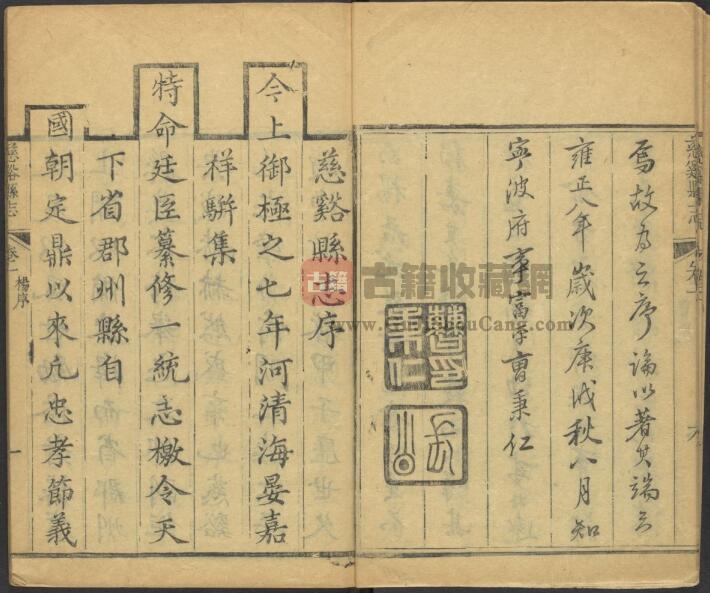 焉故为之序論以著其端云
雍正八年歲次庚戌秋八月知
寧波府事富平曹秉仁
曹秉仁印
慈谿縣志序
今上御極之七年河清海晏嘉
祥駢集
特命廷臣纂修一統志檄令天
下省郡州縣自
國朝定鼎以來凡忠孝節義
慈谿縣志
卷一
楊序
一
古籍收藏網